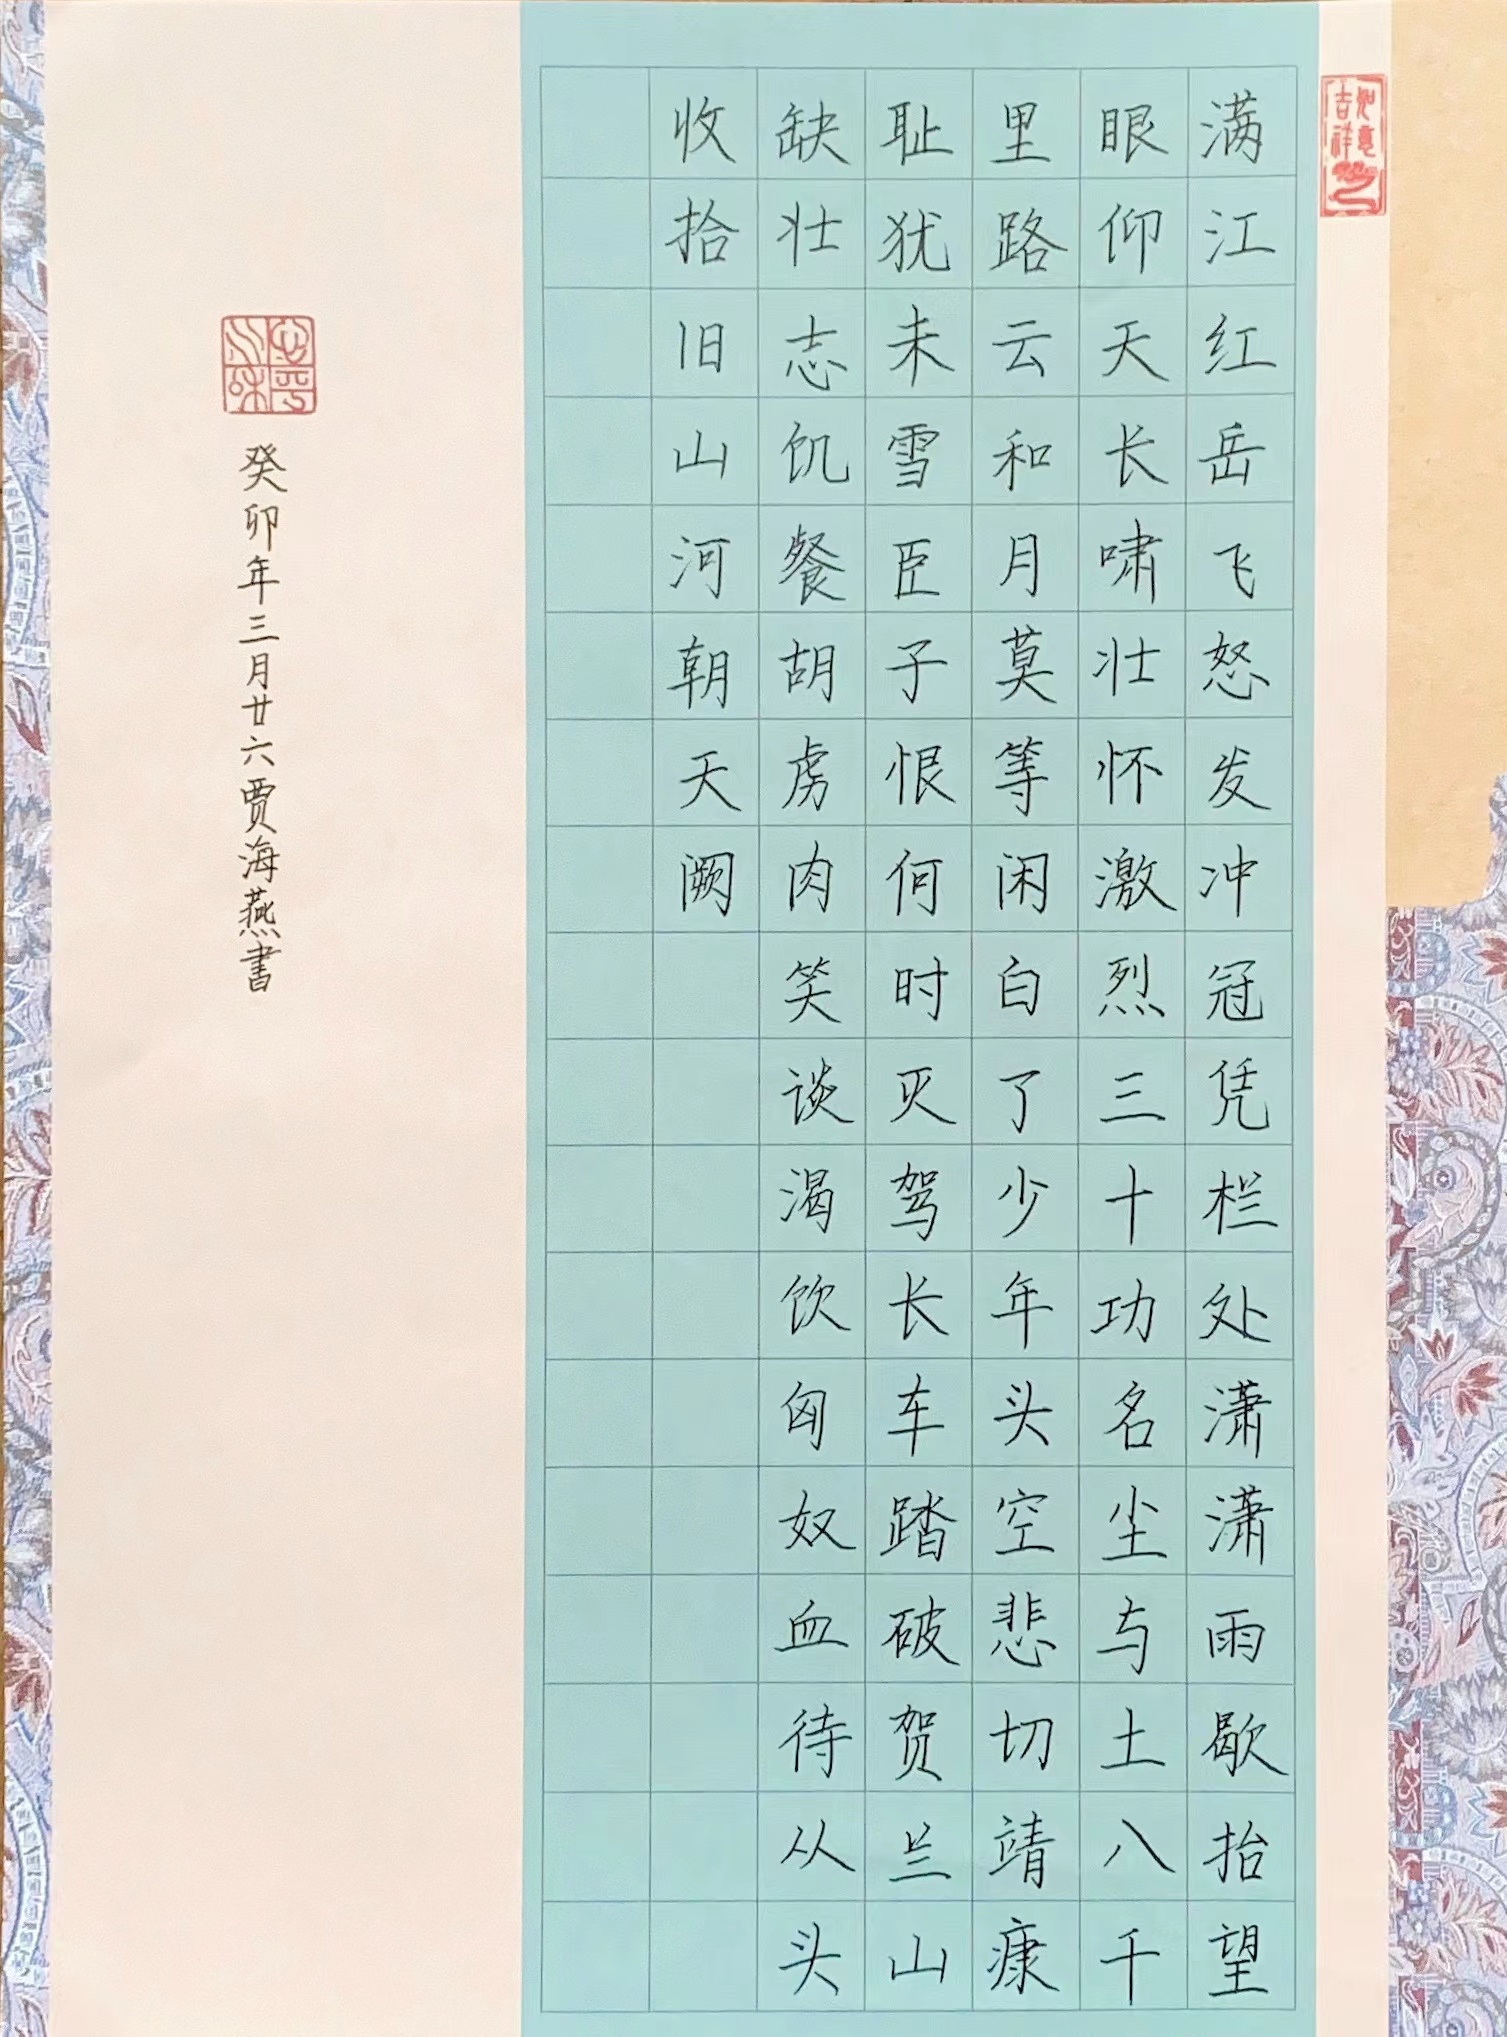 如意吉祥
满江红岳飞怒发冲冠凭栏处潇潇雨歇抬望
眼仰天长啸壮怀激烈三十功名尘与土八千
里路云和月莫等闲白了少年头空悲切靖康
耻犹未雪臣子恨何时灭驾长车踏破贺兰山
缺壮志饥餐胡虏肉笑谈渴饮匈奴血待从头
收拾旧山河朝天阙
癸卯年三月廿六贾海燕書